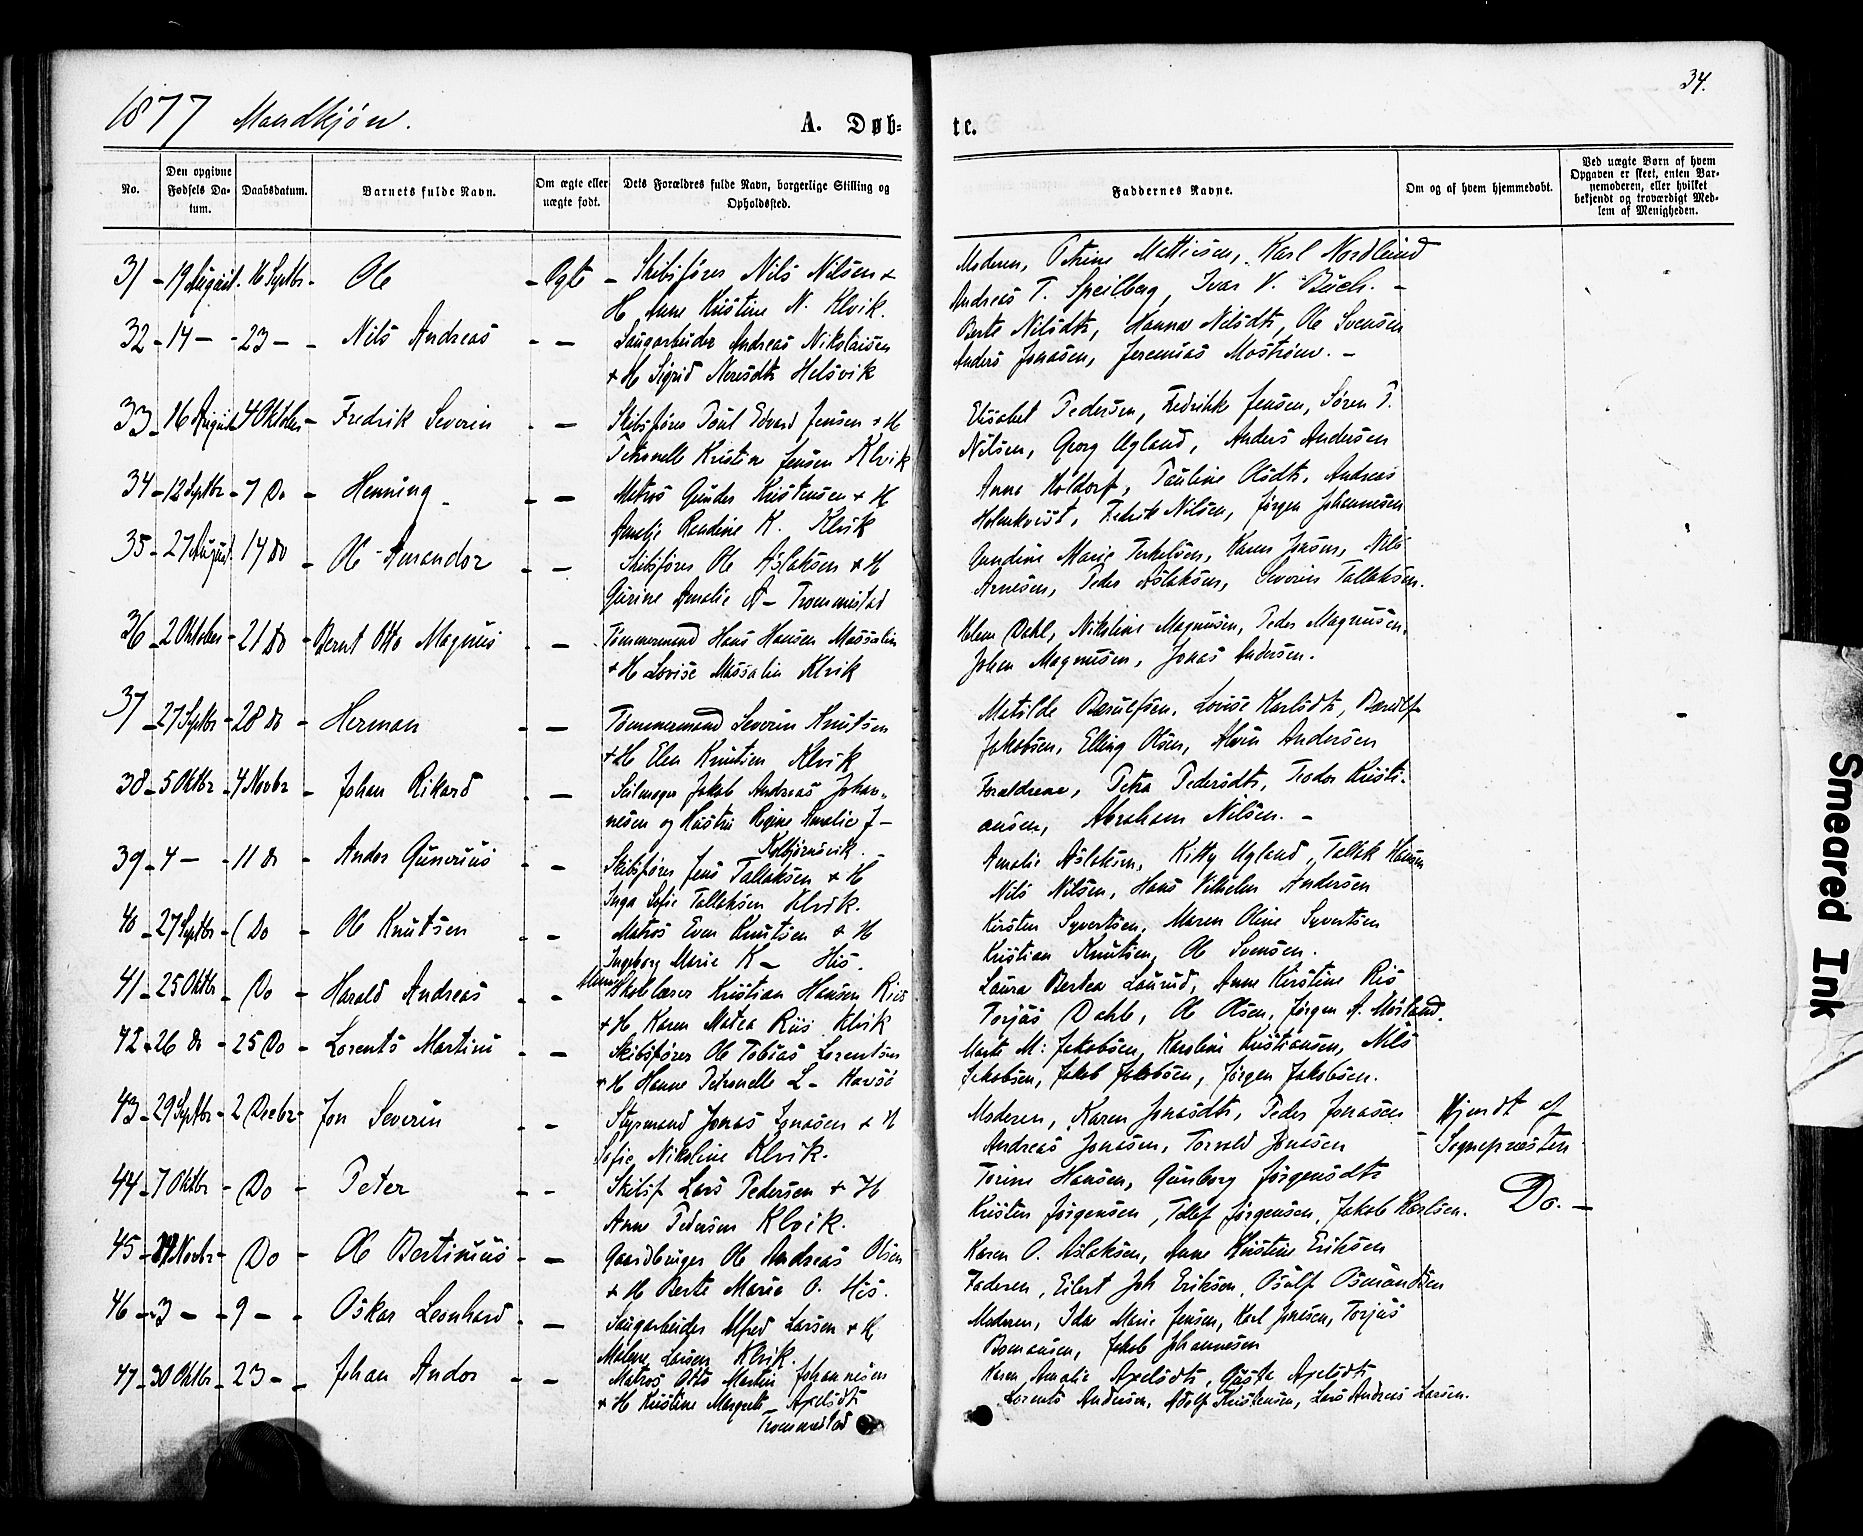 34.
1877 Mandkjøn.
A. Døb-
te.
No.
Den opgivne Fødsels Datum.
Daabsdatum.
Barnets fulde Navn.
Om ægte eller uægte født.
Dets Forældres fulde Navn, borgerlige Stilling og Opholdssted.
Faddernes Navne.
Om og af hvem hjemmedøbt.
Ved uægte Børn af hvem Opgaven er skeet, enten Barnemoderen, eller hvilket bekjendt og troværdigt Medlem af Menigheden.
31 - 19 August - 16 Septbr - Ole - Ægte - Skibsfører Nils Nilsen + Moderen, Petrine Mathisen, Karl Nordlund
H Anne Kristine N. Klvik. Andreas T. Speilberg, Ivar V. Buch. -
32 - 14 - - 23 - - Nils Andreas - - Saugarbeider Andreas Nikolaisen Berte Nilsdtr, Hanna Nilsdtr, Ole Svensen
+ H Sigrid Helsvik Anders Jonasen, Jeremias Mostrøm. -
33 - 16 August 4 Oktober - Fredrik Severin - - Skibsfører Poul Edvard Jensen + H Elisabet Pedersen, Fredrikke Jensen, Søren P.
Petronelle Kristine Jensen Klvik Nilsen, Georg Ugland, Anders Andersen
34 - 12 Septbr - 7 Do - Henning - - - Matros Gunder Kristensen + H Anne Holdorf, Pauline Olsdtr, Andreas
Amalie K. Klvik Holmkvist, Fredrik Nilsen, Jørgen Johannesen
35 - 27 August 14 Do - Ole Amandor - - Skibsfører Ole Aslaksen + H Gundine Marie Terkelsen, Karen Jensen, Nils
Gurine Amalie A - Trommestad Arnesen, Peder Aslaksen, Severin Tallaksen.
36 - 2 Oktober - 21 Do - Bernt Otto Magnus - - Tømmermand Hans Hansen Massalin Helene Dahl, Nikoline Magnusen, Peder Magnusen,
+ H Lovise Massalin Klvik Johan Magnusen, Jonas Andersen.
37 - 27 Septbr - 28 Do - Herman - - Tømmermand Severin Knutsen Matilde Berulfsen, Louise Karlsdtr, Berulf
+ H Elen Knutsen Klvik Jakobsen, Elling Olsen, Alvin Andersen
38 - 5 Oktbr - 4 Novbr - Johan Rikard - - Seilmager Jakob Andreas Johan- Forældrene, Petra Pedersdtr, Teodor Kristi-
nesen og Hustru Regine Amalie J - ansen, Abraham Nilsen. -
Kolbjørnsvik.
39 - 4 - 11 Do - Andor Gunerius - - Skibsfører Jens Tallaksen + H Amalie Aslaksen, Kitty Ugland, Tallak Hansen
Inga Sofie Tallaksen Klvik. Nils Nilsen, Hans Vilhelm Andersen
40 - 27 Septbr - Do - Ole Knutsen - - Matros Even Knutsen + H Kirsten Syvertsen, Maren Oline Syvertsen
Ingeborg Marie K - His. Kristian Knutsen, Ole Svensen.
41 - 25 Oktbr - Do - Harald Andreas - - Skolelærer Kristian Hansen Riis Laura Bertea Laurud, Anne Kirstine Riis
+ H Karen Matea Riis Klvik Torjus Dahle, Ole Olsen, Jørgen A. Møsland.
42 - 26 Do - 25 Do - Lorents Martin - - Skibsfører Ole Tobias Lorentsen Marte M: Jakobsen, Karoline Kristiansen, Nils
+ H Hanne Petronelle L - Havsø Jakobsen, Jakob Jakobsen, Jørgen Jakobsen.
43 - 29 Septbr - 2 Decbr - Jon Severin - - Styrmand Jonas Jonasen + H Moderen, Karen Jonasdtr, Peder Jonasen Hjemdt af
Sofie Nikoline Klvik. Andreas Jonasen, Torvald Jonasen Sognepræsten
44 - 7 Oktbr - Do - Peter - - Skibsf Lars Pedersen + H Torine Hansen, Gunborg Jørgensdtr Do. -
Anne Pedersen Klvik. Kristen Jørgensen, Tellef Jørgensen, Jakob Karlsen.
45 - Novbr - Do - Ole Bertinius - - Gaardbruger Ole Andreas Olsen Karen O. Aslaksen, Anne Kristine Eriksen
+ H Berte Maria O. His. Faderen, Eilert Joh Eriksen, Osulf Osmundsen
46 - 3 - - 9 - - Oskar Leonhard - - Saugarbeider Alfred Larsen + H Moderen, Ida Marie Jensen, Karl Jonesen, Torjus
Malene Larsen Klvik. Jakob Johannesen
47 - 30 Oktbr - 23 - - Johan Andor - - Matros Otto Martin Johannesen Karen Amalie Axelsdtr, Guste Axelsdtr,
+ H Kristine Margrete Axelsdtr Lorents Andersen, Adolf Kristensen, Lars Andreas Larsen.
Trommestad
Smeared Ink